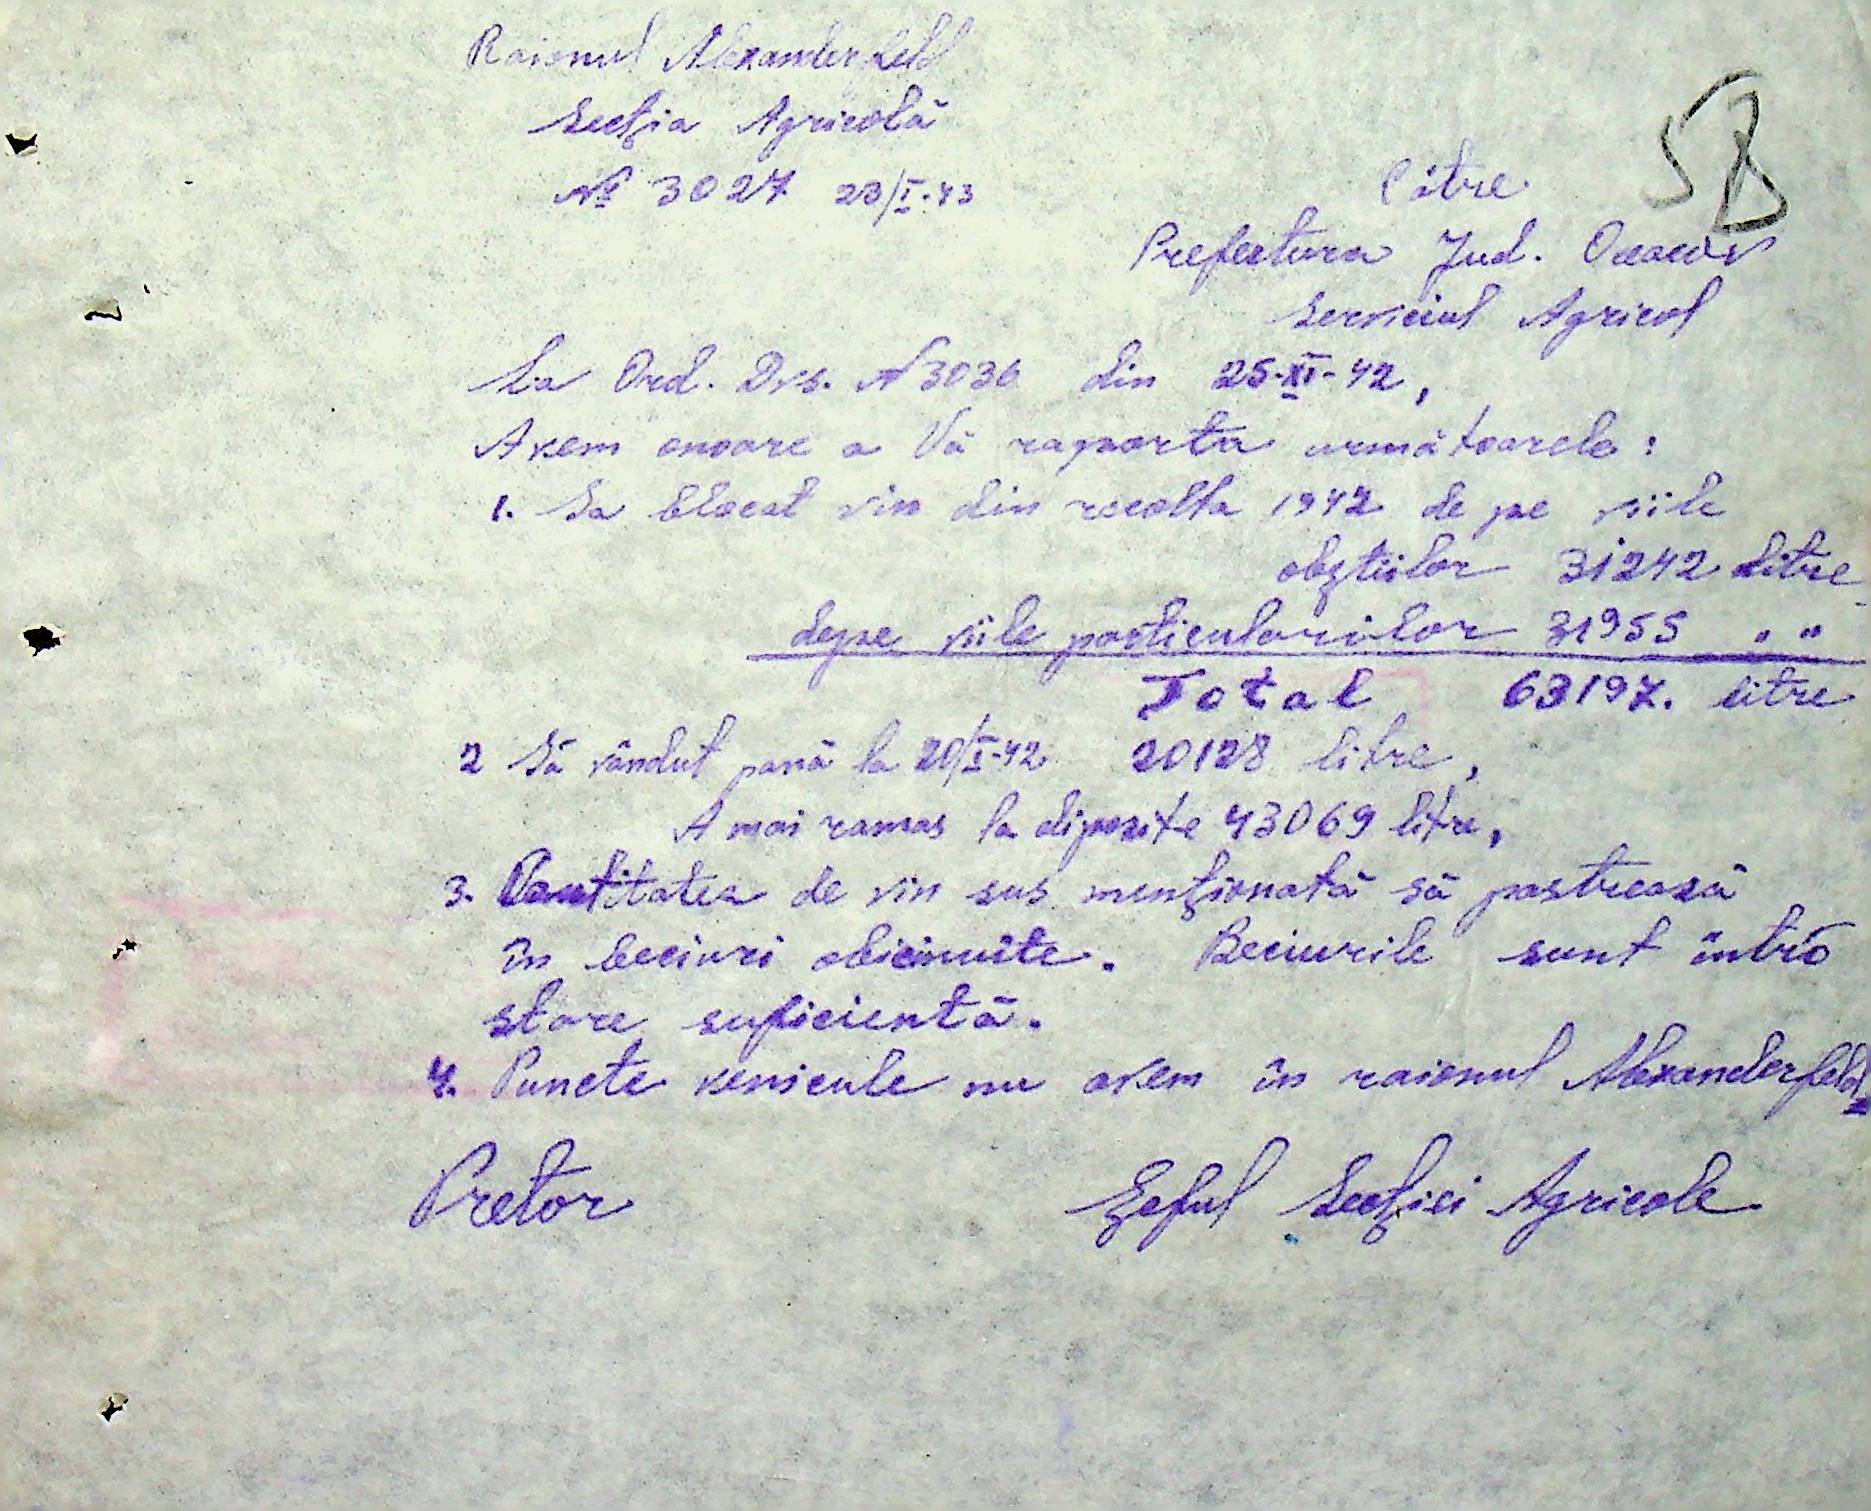 Raionul Alexanderfeld
Secția Agricolă
№ 3027 23/I-43
58
Către
Prefectura Jud. Oceacov
Serviciul Agricol
La Ord. Dvs. N 3036 din 25-XI-42,
Avem onoare a Vă raporta următoarele:
1. Sa blocat vin din recolta 1942 de pe viile
obștiilor 31242 litre
depe viile particularilor 31955 " "
Total 63197. litre
2 Să vândut pană la 20/I-42 20128 litre,
A mai ramas la dipozite 43069 litre,
3. Cantitatea de vin sus menționată să pastrează
în beciuri obicinuite. Beciurile sunt într'o
stare suficientă.
4. Puncte venicule nu avem în raionul Alexanderfeld
Pretor
Șeful Secției Agricole